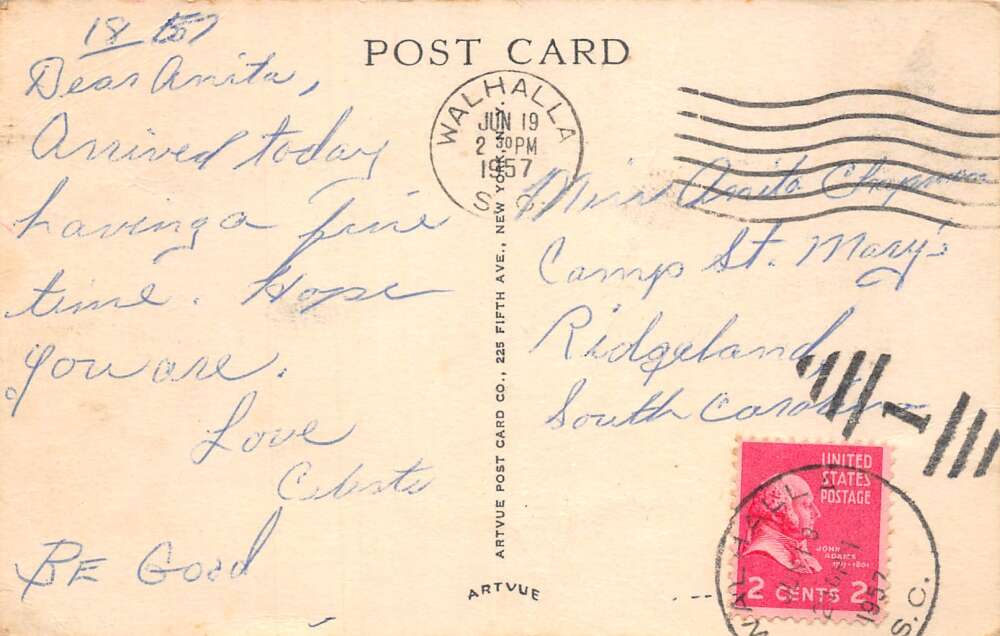 18
Dear Anita,
Arrived today
having a fine
time. Hope
you are.
Love
Celeste
BE Good
POST CARD
WALHALLA
JUN 19
2 30 PM
1957
S. C.
ARTVUE POST CARD CO., 225 FIFTH AVE., NEW YORK, N. Y.
ARTVUE
Miss Anita
Camp St. Mary's
Ridgeland
South Carolina
UNITED
STATES
POSTAGE
JOHN
ADAMS
2 CENTS 2
1957
S.C.